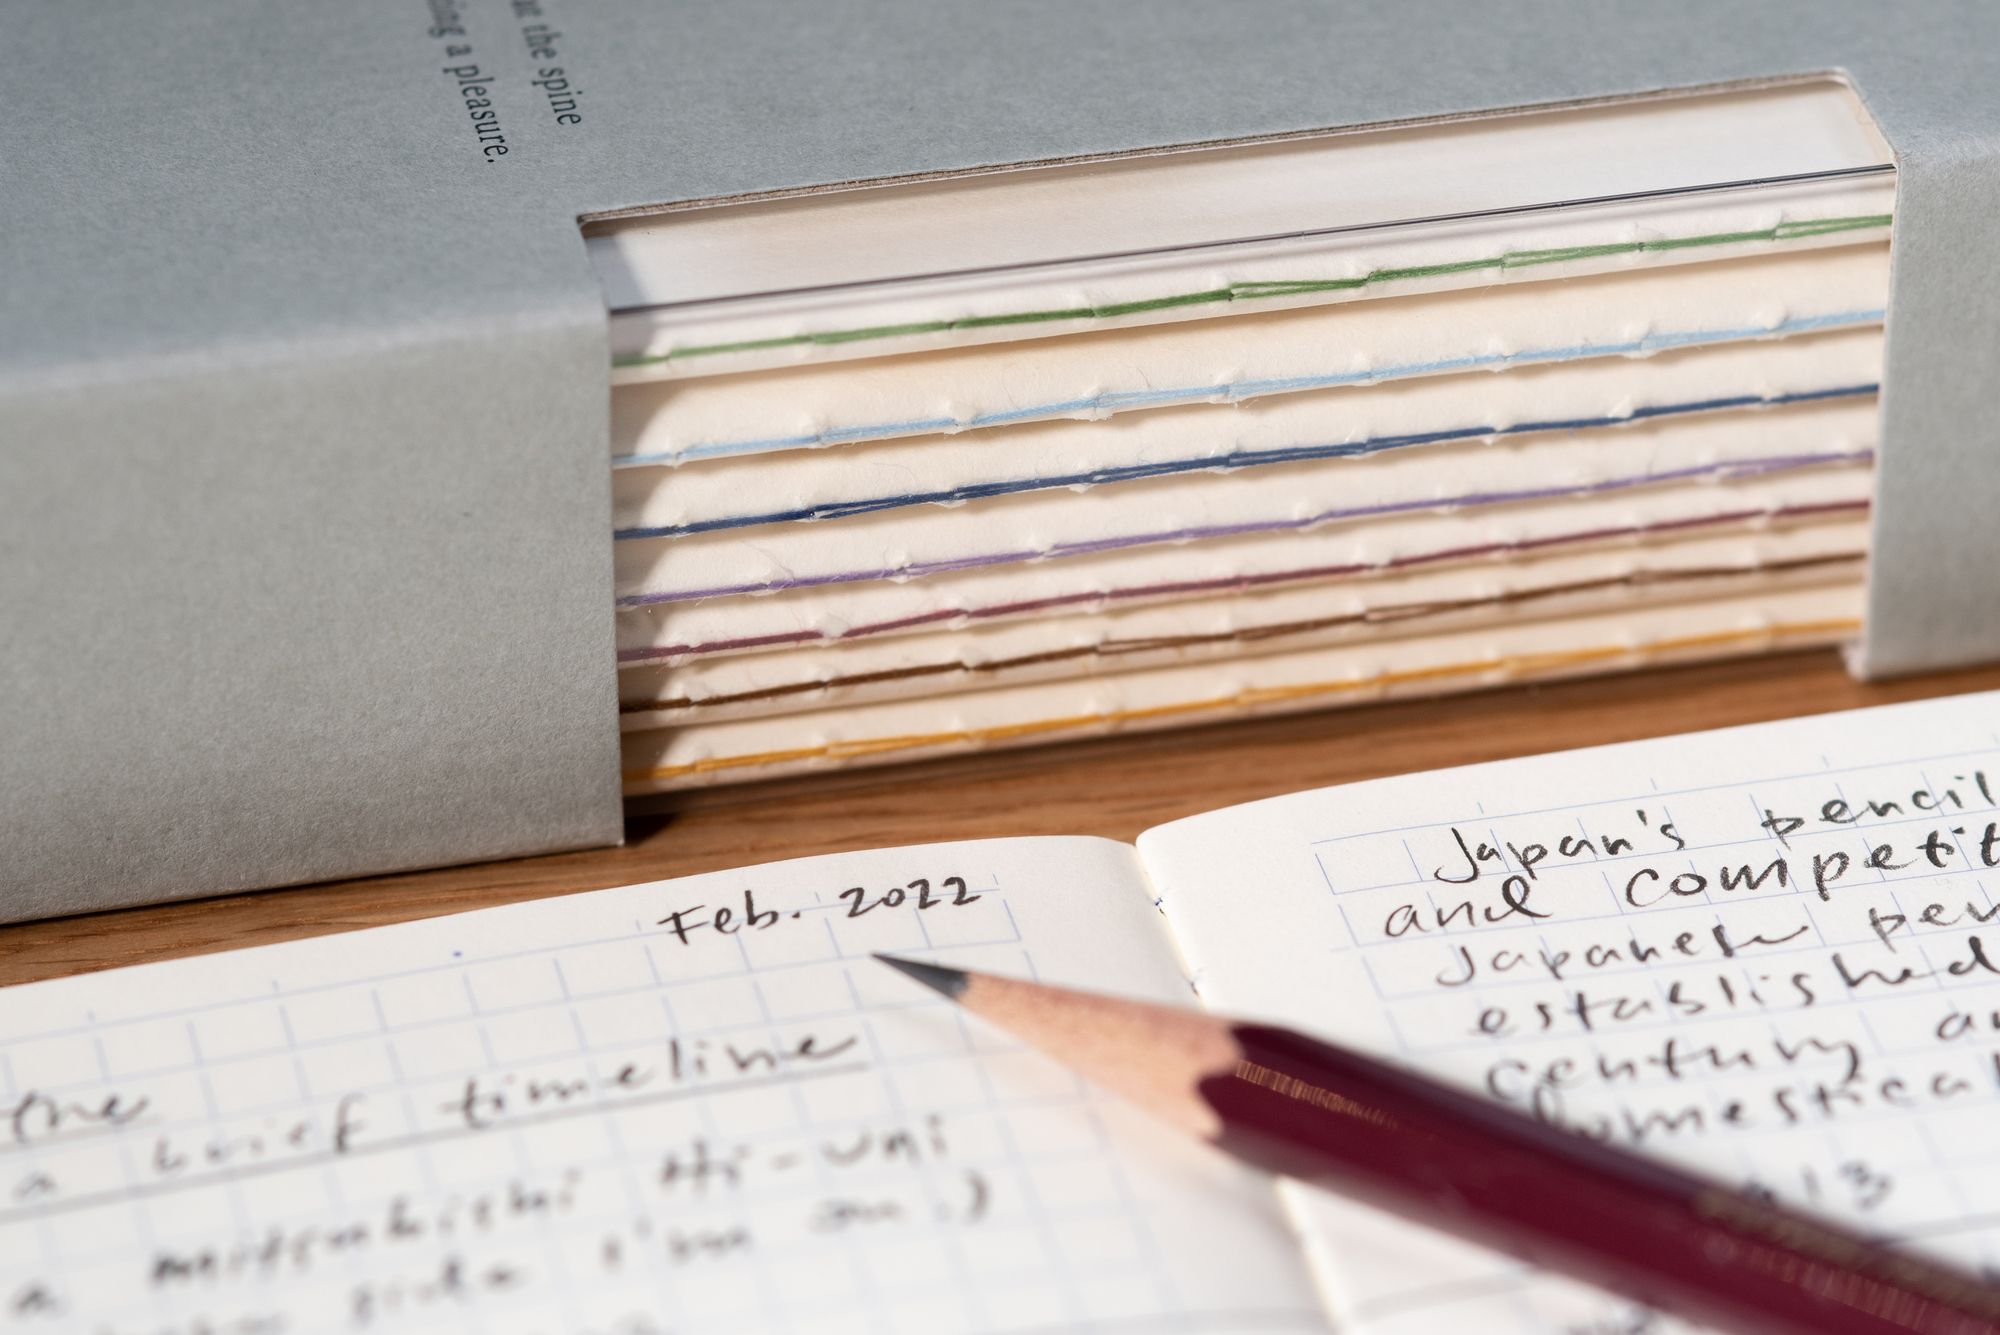 at the spine
ing a pleasure.
Feb. 2022
the
a brief timeline
a mitsubishi Hi-uni
side I'm on.)
Japan's pencil
and competit
Japanese pen
established
century a
domestical
913